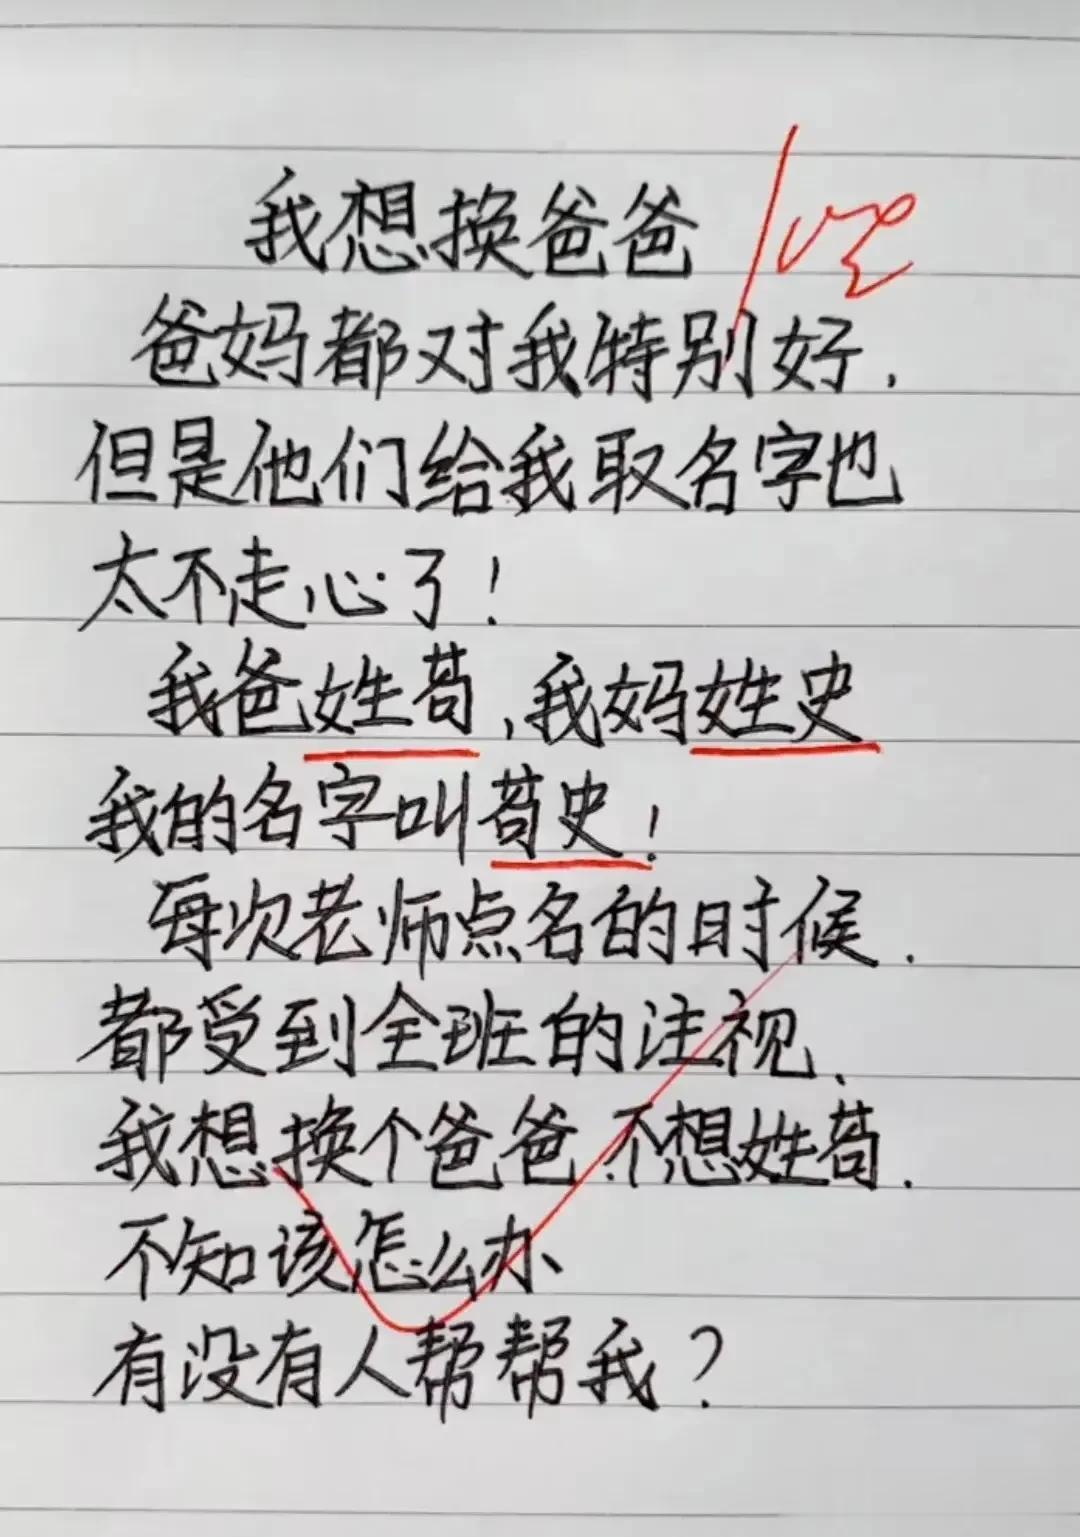 我想换爸爸
爸妈都对我特别好,
但是他们给我取名字也
太不走心了!
我爸姓苟,我妈姓史
我的名字叫苟史!
每次老师点名的时候.
都受到全班的注视、
我想换个爸爸.不想姓苟.
不知该怎么办
有没有人帮帮我?